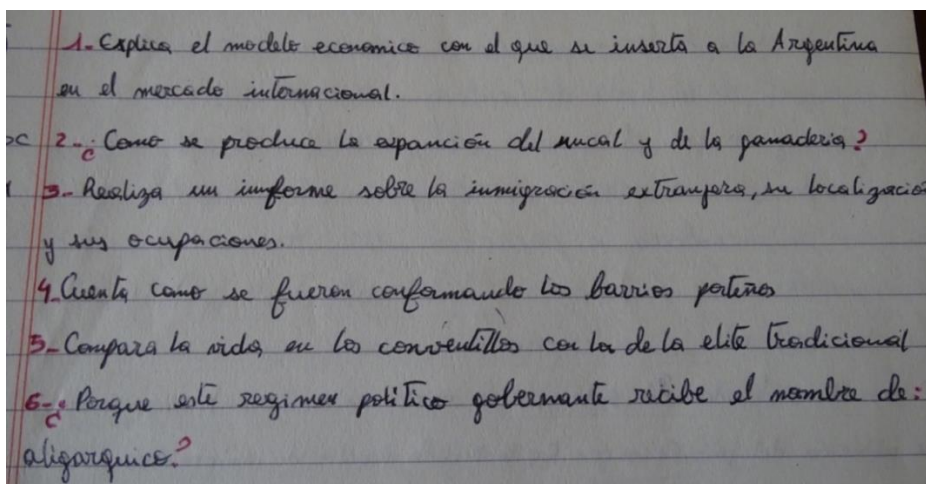 1- Explica el modelo economico con el que se inserta a la Argentina
en el mercado internacional.
2- ¿Como se produce la expanción del rucal y de la ganaderia?
3- Realiza un imforme sobre la inmigración extranjera, su localizació
y sus ocupaciones.
4- Cuenta como se fueron conformando los barrios porteños
5- Compara la vida en los conventillos con la de la elite tradicional
6- ¿Porque este regimen politico gobernante recibe el nombre de:
aligarquico?